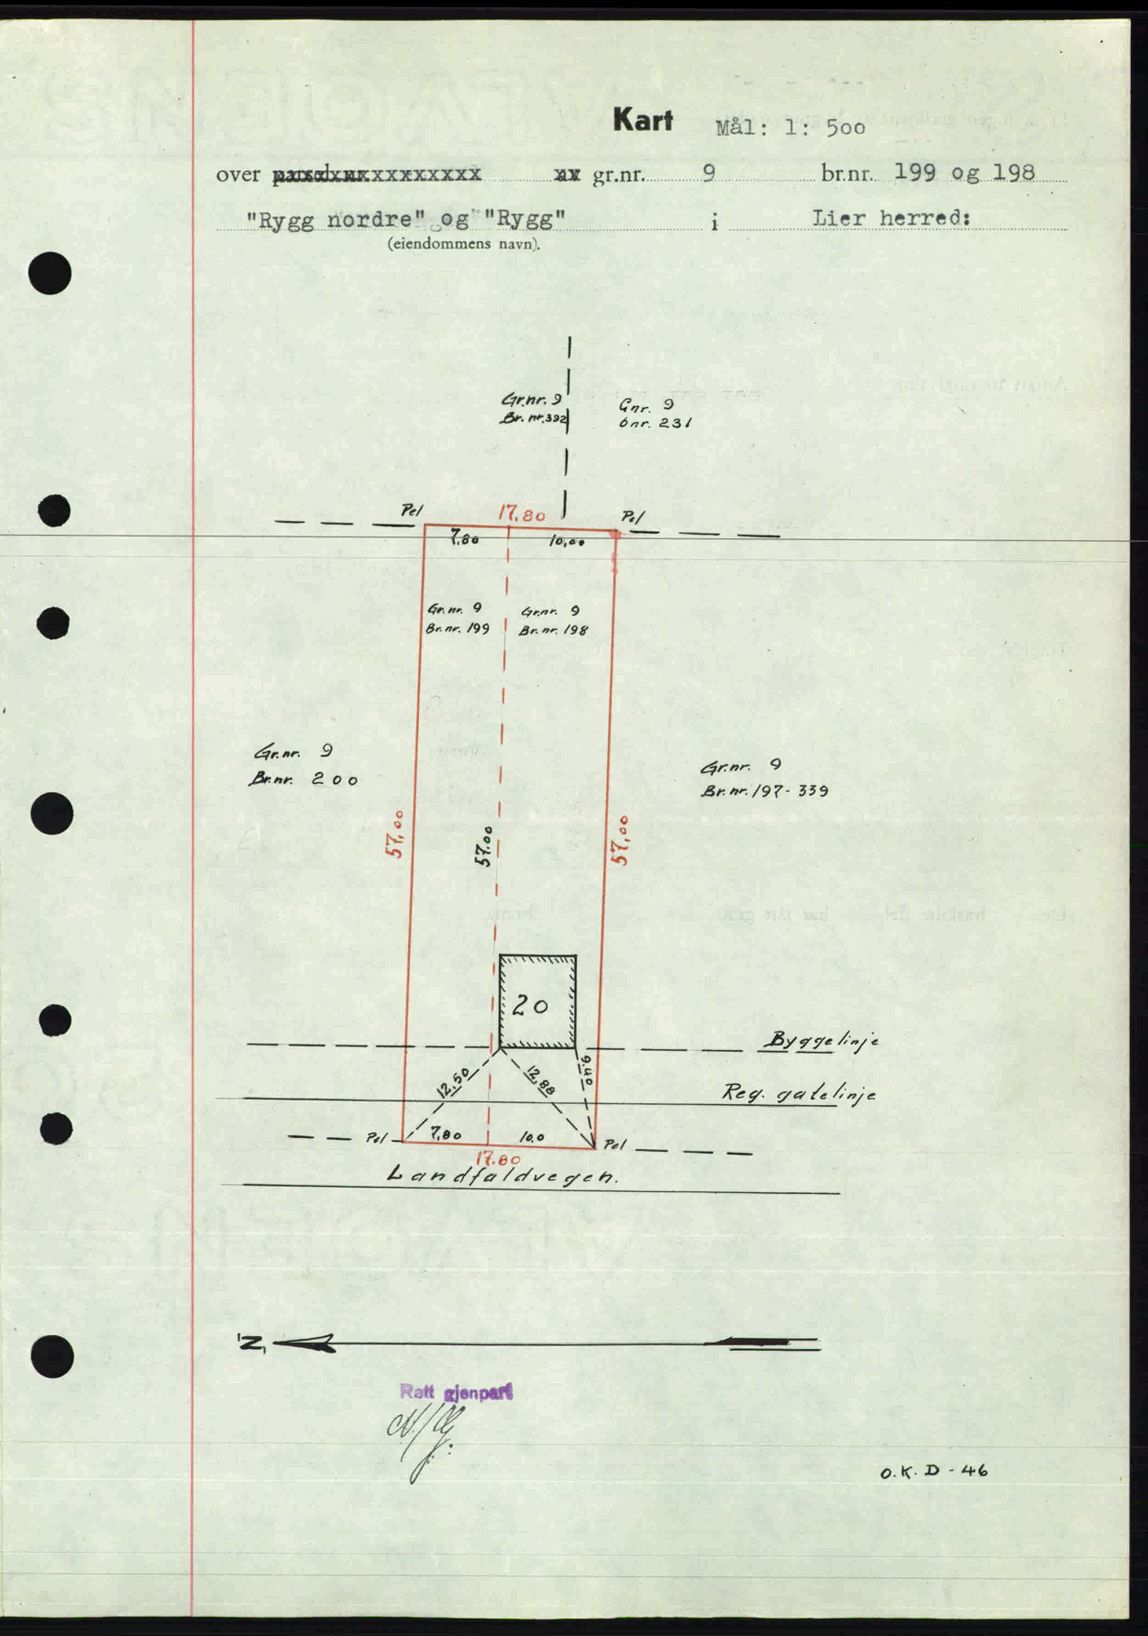 Kart Mål: 1: 500
over gr.nr. 9 br.nr. 199 og 198
"Rygg nordre" og "Rygg" i Lier herred:
(eiendommens navn).
Gr.nr. 9
Br. nr. 392
Gnr. 9
bnr. 231
Pel 17.80 Pel
7.80 10,00
Gr.nr. 9
Br.nr. 199
Gr.nr. 9
Br.nr. 198
Gr.nr. 9
Br.nr. 200
Gr.nr. 9
Br.nr. 197-339
57,00
57.00
57,00
20
Byggelinje
12.50
12,88
9,40
Reg. gatelinje
Pel 7,80 10.0 Pel
17.80
Landfaldvegen.
N.
Rett gjenpart
O.K.D - 46